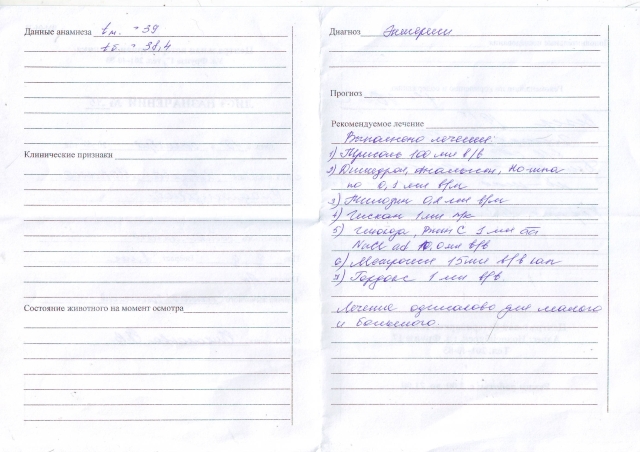 Данные анамнеза t м. - 39
t б. - 38,4
Клинические признаки
Состояние животного на момент осмотра
Диагноз Энтерит
Прогноз
Рекомендуемое лечение
Выполнено лечение:
1) Трисоль 100 мл в/в
2) Димедрол, Анальгин, Но-шпа
по 0,1 мл в/м
3) Тилозин 0,2 мл в/м
4) Гискан 1 мл п/к
5) Вит С 1 мл
NaCl ad 10,0 мл в/в
6) 15 мл в/в кап
7) Гордокс 1 мл в/в
Лечение одинаково для малого
и большого.